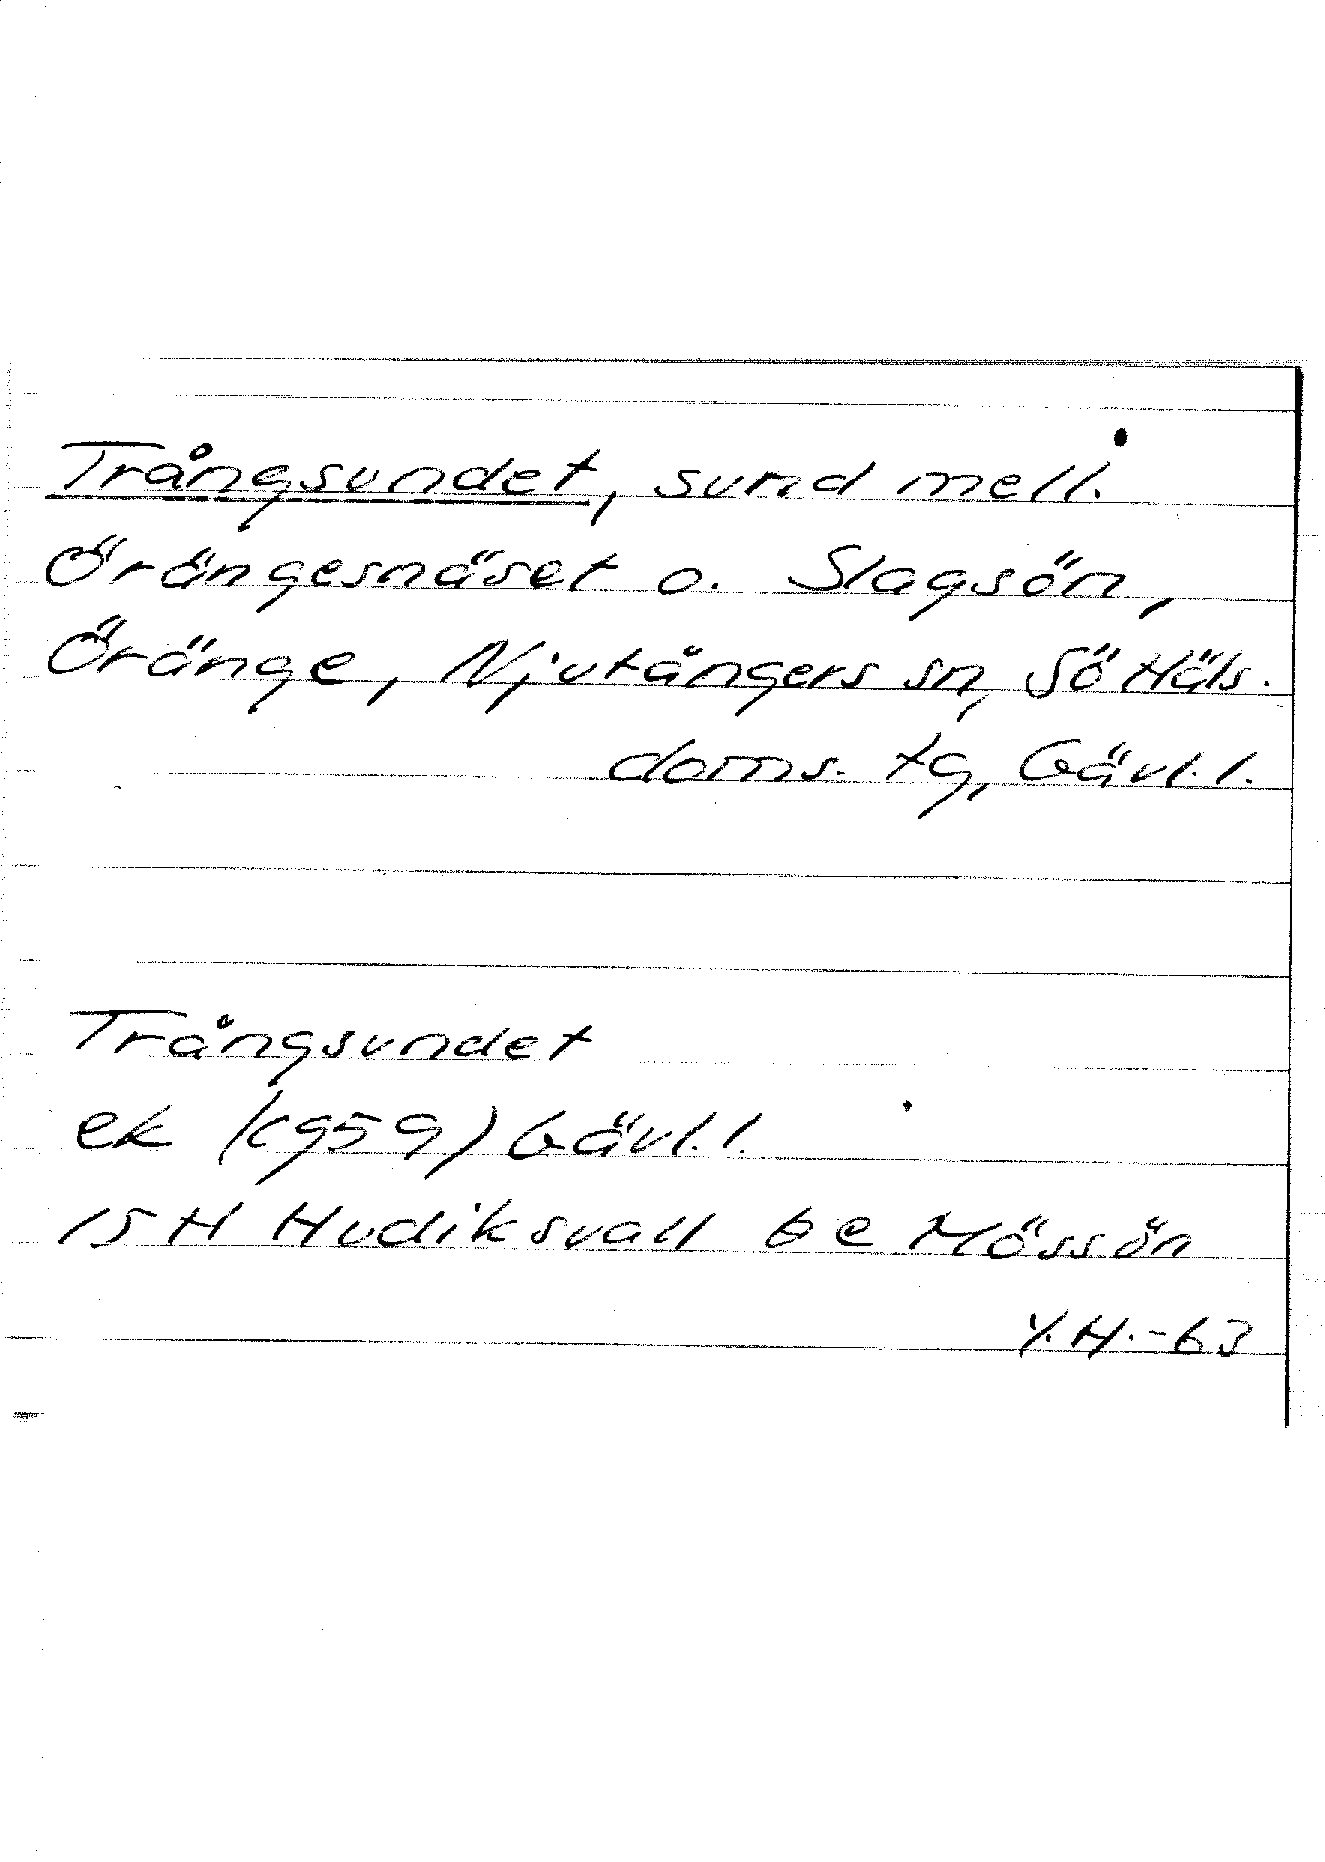 Trångsundet, sund mell.
Örängesnäset o. Slagsön,
Öränge, Njutångers sn, Sö Häls.
doms. tg, Gävl. l.
Trångsundet
ek (c959) Gävl. l.
15 H Hudiksvall 6 e Mössön
Y.H.-63